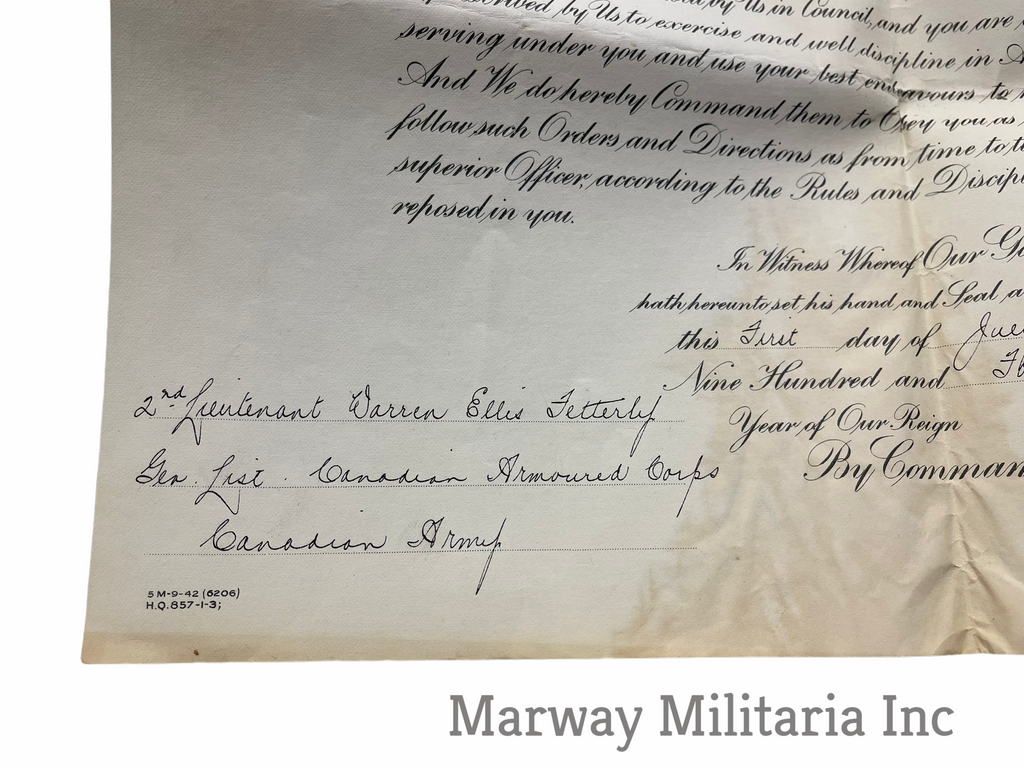 by Us in Council, and you are
by Us to exercise and well discipline in
serving under you and use your best endeavours to
And We do hereby Command them to Obey you as
follow such Orders and Directions as from time to
superior Officer, according to the Rules and
reposed in you.
In Witness Whereof Our
hath hereunto set his hand and Seal
this First day of
Nine Hundred and
Year of Our Reign
By
2nd Lieutenant Warren Ellis Fetterly
Gen. List. Canadian Armoured Corps
Canadian Army
5 M-9-42 (6206)
H.Q. 857-1-3;
Marway Militaria Inc